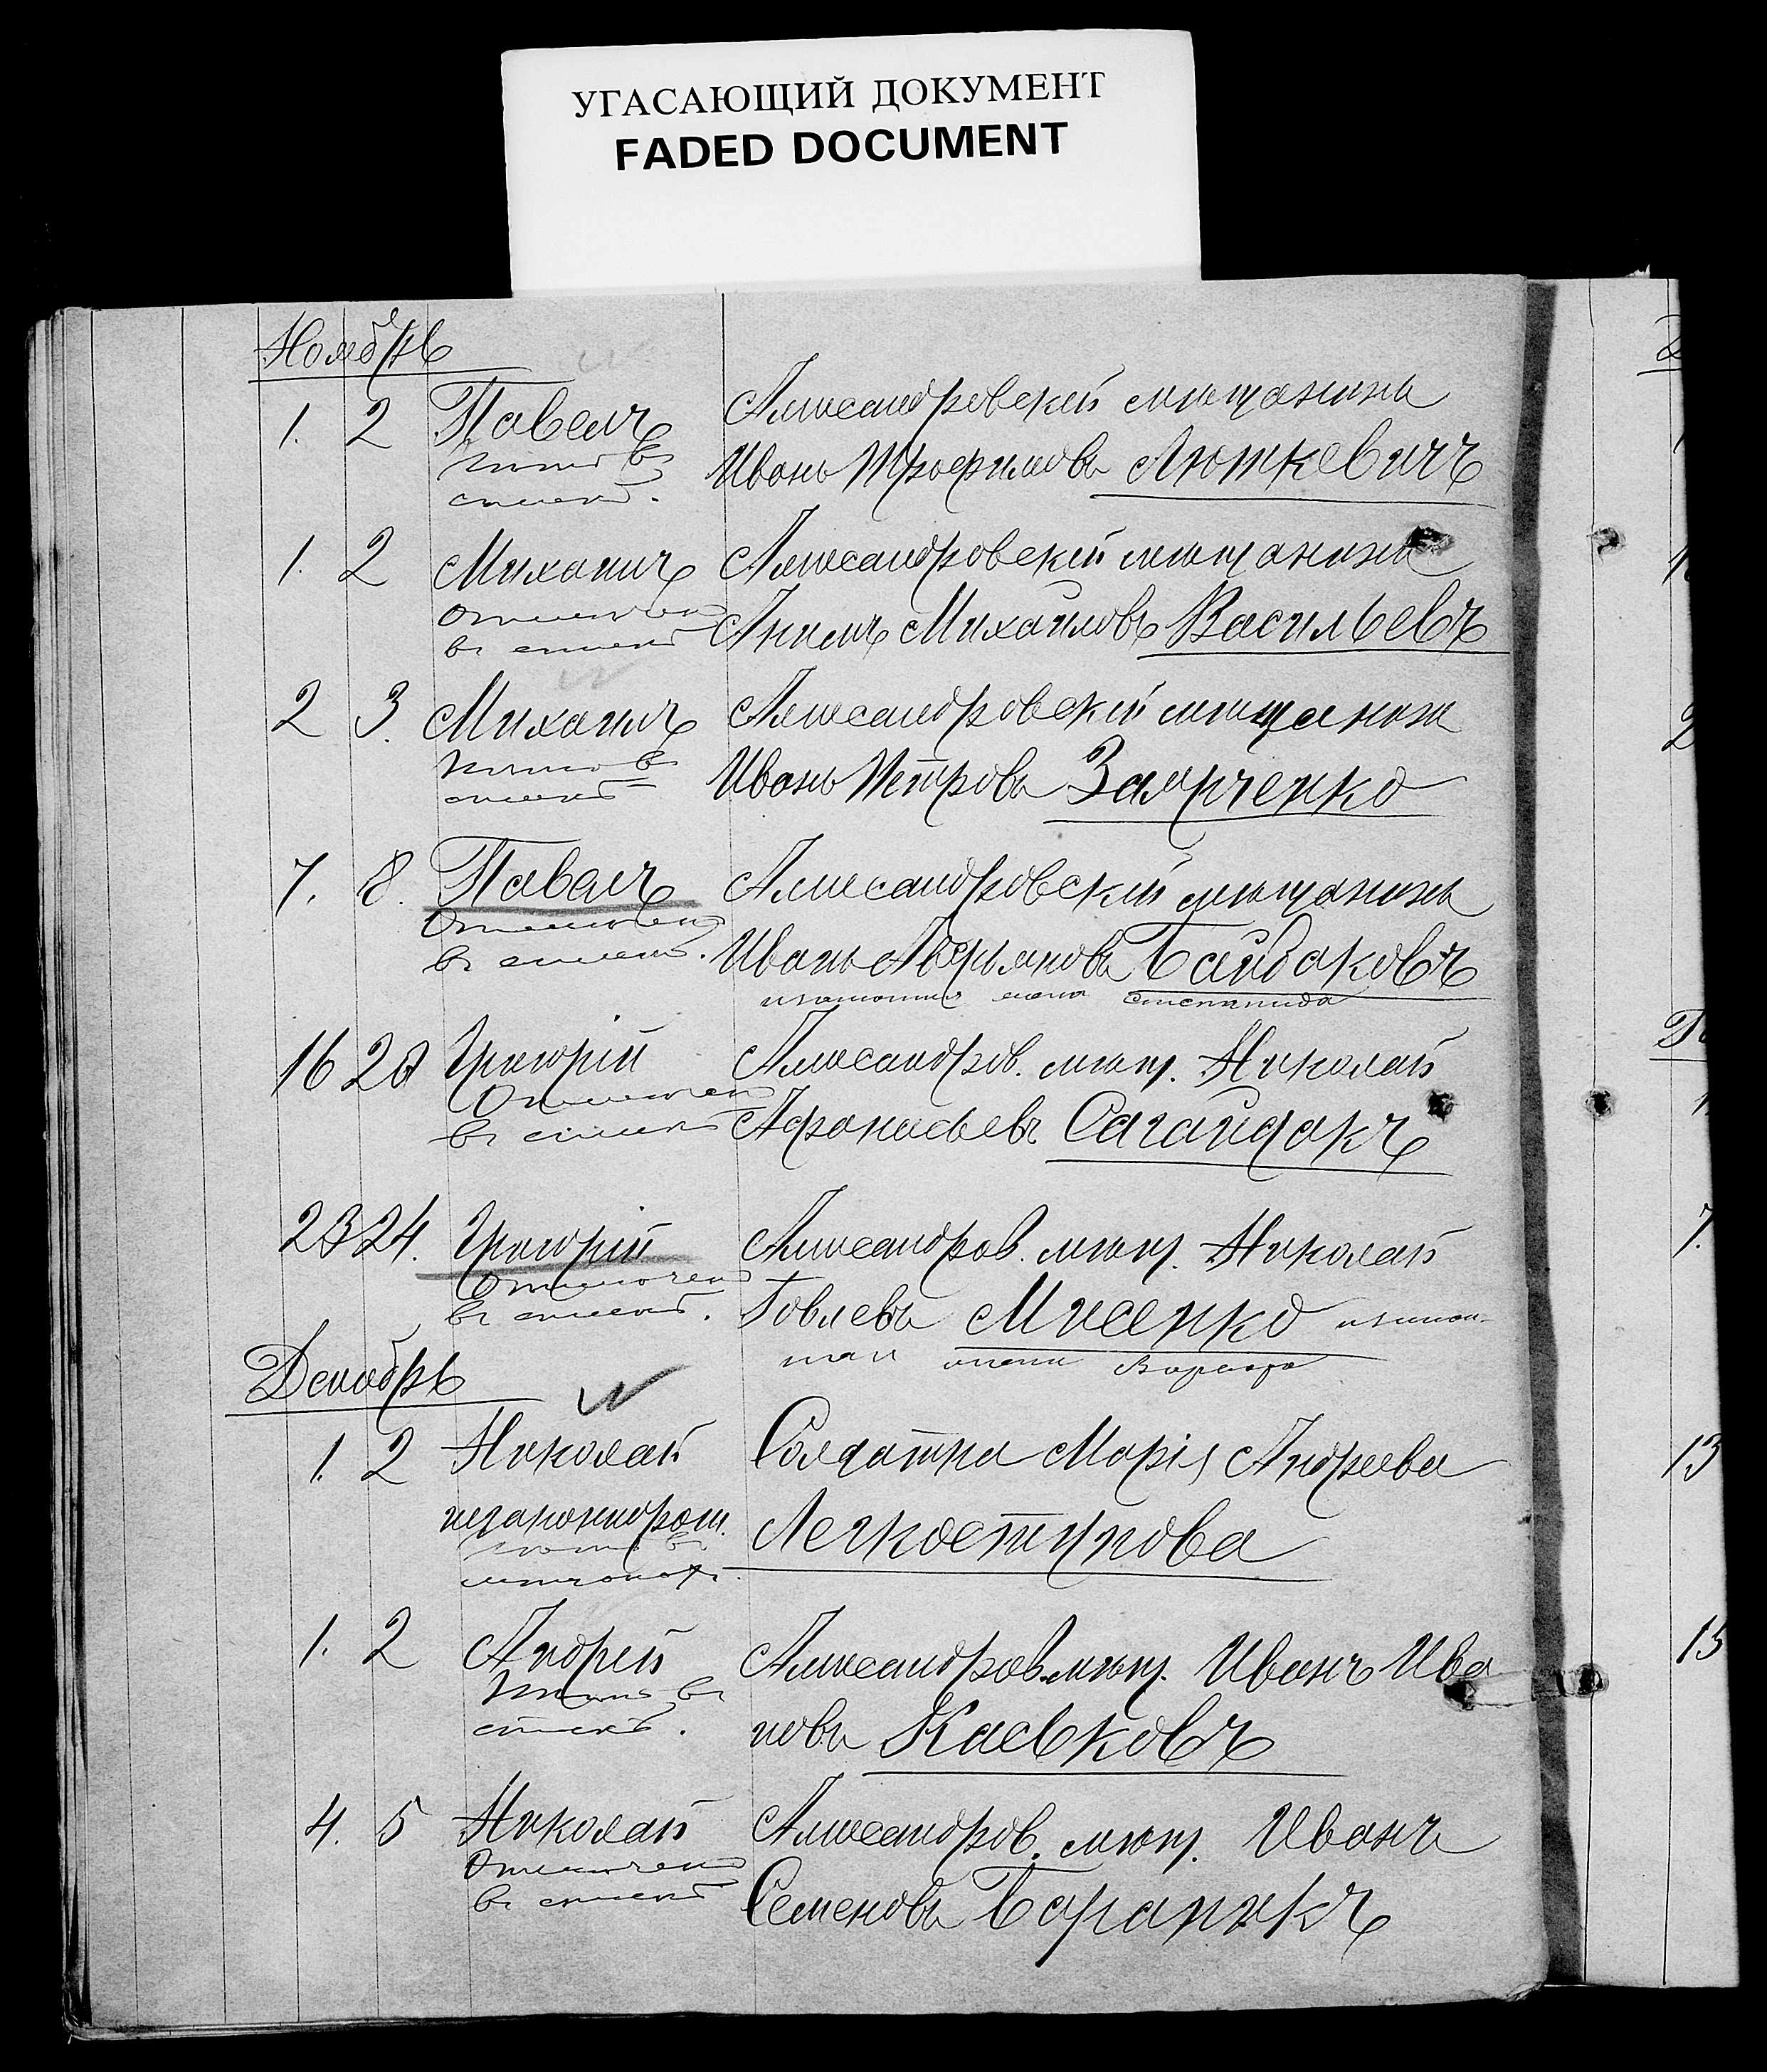 УГАСАЮЩИЙ ДОКУМЕНТ
FADED DOCUMENT
Ноябрь
1. 2 Павелъ Александровскій мѣщанинъ
нѣтъ въ Иванъ Трофимовъ Люткевичъ
спискѣ.
1. 2 Михаилъ Александровскій мѣщанинъ
Отмѣченъ Акимъ Михайловъ Васильевъ
въ спискѣ
2 3. Михаилъ Александровскій мѣщанинъ
нѣтъ въ Иванъ Петровъ Заярченко
спискѣ
7. 8. Павелъ Александровскій мѣщанинъ
Отмѣченъ Иванъ Аверьяновъ Байдаковъ
въ спискѣ.
16 20 Григорій Александров. мѣщ. Николай
Отмѣченъ Афанасьевъ Сагайдакъ
въ спискѣ
23 24. Григорій Александров. мѣщ. Николай
Отмѣченъ Іовлевъ Мисенко
въ спискѣ.
Декабрь
1. 2 Николай Солдатка Марія Андреева
незаконнорож. Легкоступова
нѣтъ въ
метриках.
1. 2 Андрей Александров. мѣщ. Иванъ Ива
нѣтъ въ новъ Каевковъ
спискѣ.
4. 5 Николай Александров. мѣщ. Иванъ
Отмѣченъ Семеновъ Бараникъ
въ спискѣ
2
7.
13
15